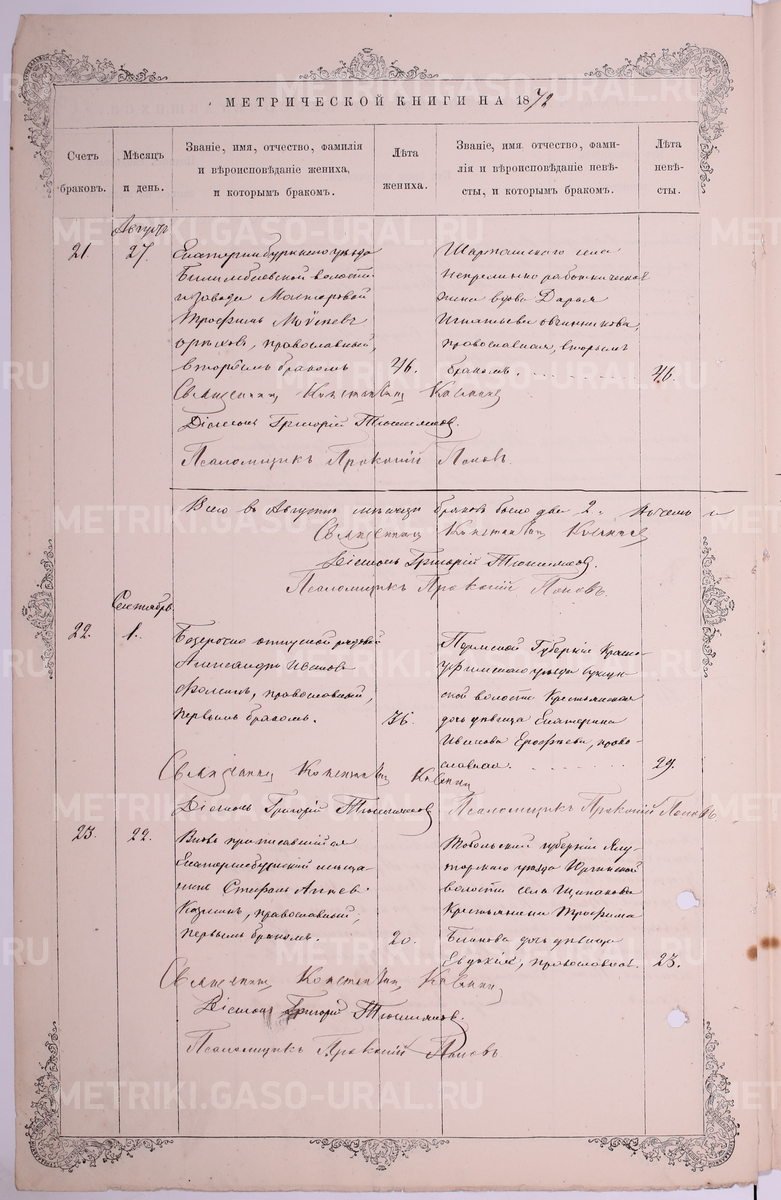 МЕТРИЧЕСКОЙ КНИГИ НА 1872
Счетъ браковъ.
Мѣсяцъ и день.
Званіе, имя, отчество, фамилія и вѣроисповѣданіе жениха, и которымъ бракомъ.
Лѣта жениха.
Званіе, имя, отчество, фамилія и вѣроисповѣданіе невѣсты, и которымъ бракомъ.
Лѣта невѣсты.
Августъ
21. 27.
Екатеринбургскаго уѣзда
Билимбаевской волости
и завода Мастеровой
Трофимъ
православный,
вторымъ бракомъ 46.
Шарташскаго села
жена вдова Дарья
Игнатьева Овчинникова,
православная, вторымъ
бракомъ. 46.
Священникъ Константинъ
Діаконъ Григорій
Псаломщикъ Прокопій Поповъ.
Всего въ Августѣ мѣсяцѣ браковъ было два 2.
Священникъ Константинъ
Діаконъ Григорій
Псаломщикъ Прокопій Поповъ.
Сентябрь.
22. 1.
Безсрочно отпускной рядовой
Александръ Ивановъ
Фоминъ, православный,
первымъ бракомъ. 36.
Пермской Губерніи Красно
уфимскаго уѣзда
ской волости Крестьянская
дочь дѣвица Екатерина
Иванова Ерофѣева, право
славная. 29.
Священникъ Константинъ
Діаконъ Григорій
Псаломщикъ Прокопій Поповъ
23. 22.
Вновь приписавшійся
Екатеринбургскій мѣща
нинъ Стефанъ
Козминъ, православный,
первымъ бракомъ. 20.
Тобольской губерніи Ялу
торскаго уѣзда Юргинской
волости села Шипакова
Крестьянина Трофима
дочь дѣвица
Евдокія, православная. 23.
Священникъ Константинъ
Діаконъ Григорій
Псаломщикъ Прокопій Поповъ
METRIKI.GASO-URAL.RU